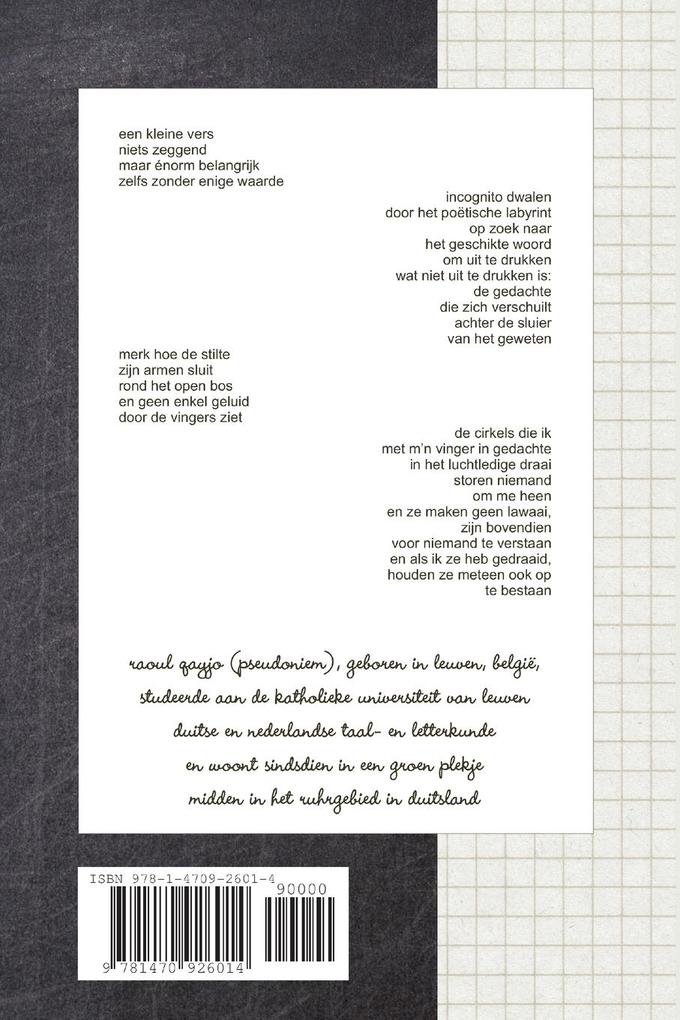 een kleine vers
niets zeggend
maar énorm belangrijk
zelfs zonder enige waarde
incognito dwalen
door het poëtische labyrint
op zoek naar
het geschikte woord
om uit te drukken
wat niet uit te drukken is:
de gedachte
die zich verschuilt
achter de sluier
van het geweten
merk hoe de stilte
zijn armen sluit
rond het open bos
en geen enkel geluid
door de vingers ziet
de cirkels die ik
met m'n vinger in gedachte
in het luchtledige draai
storen niemand
om me heen
en ze maken geen lawaai,
zijn bovendien
voor niemand te verstaan
en als ik ze heb gedraaid,
houden ze meteen ook op
te bestaan
raoul qayjo (pseudoniem), geboren in leuven, belgië,
studeerde aan de katholieke universiteit van leuven
duitse en nederlandse taal- en letterkunde
en woont sindsdien in een groen plekje
midden in het ruhrgebied in duitsland
ISBN 978-1-4709-2601-4
90000
9 781470 926014